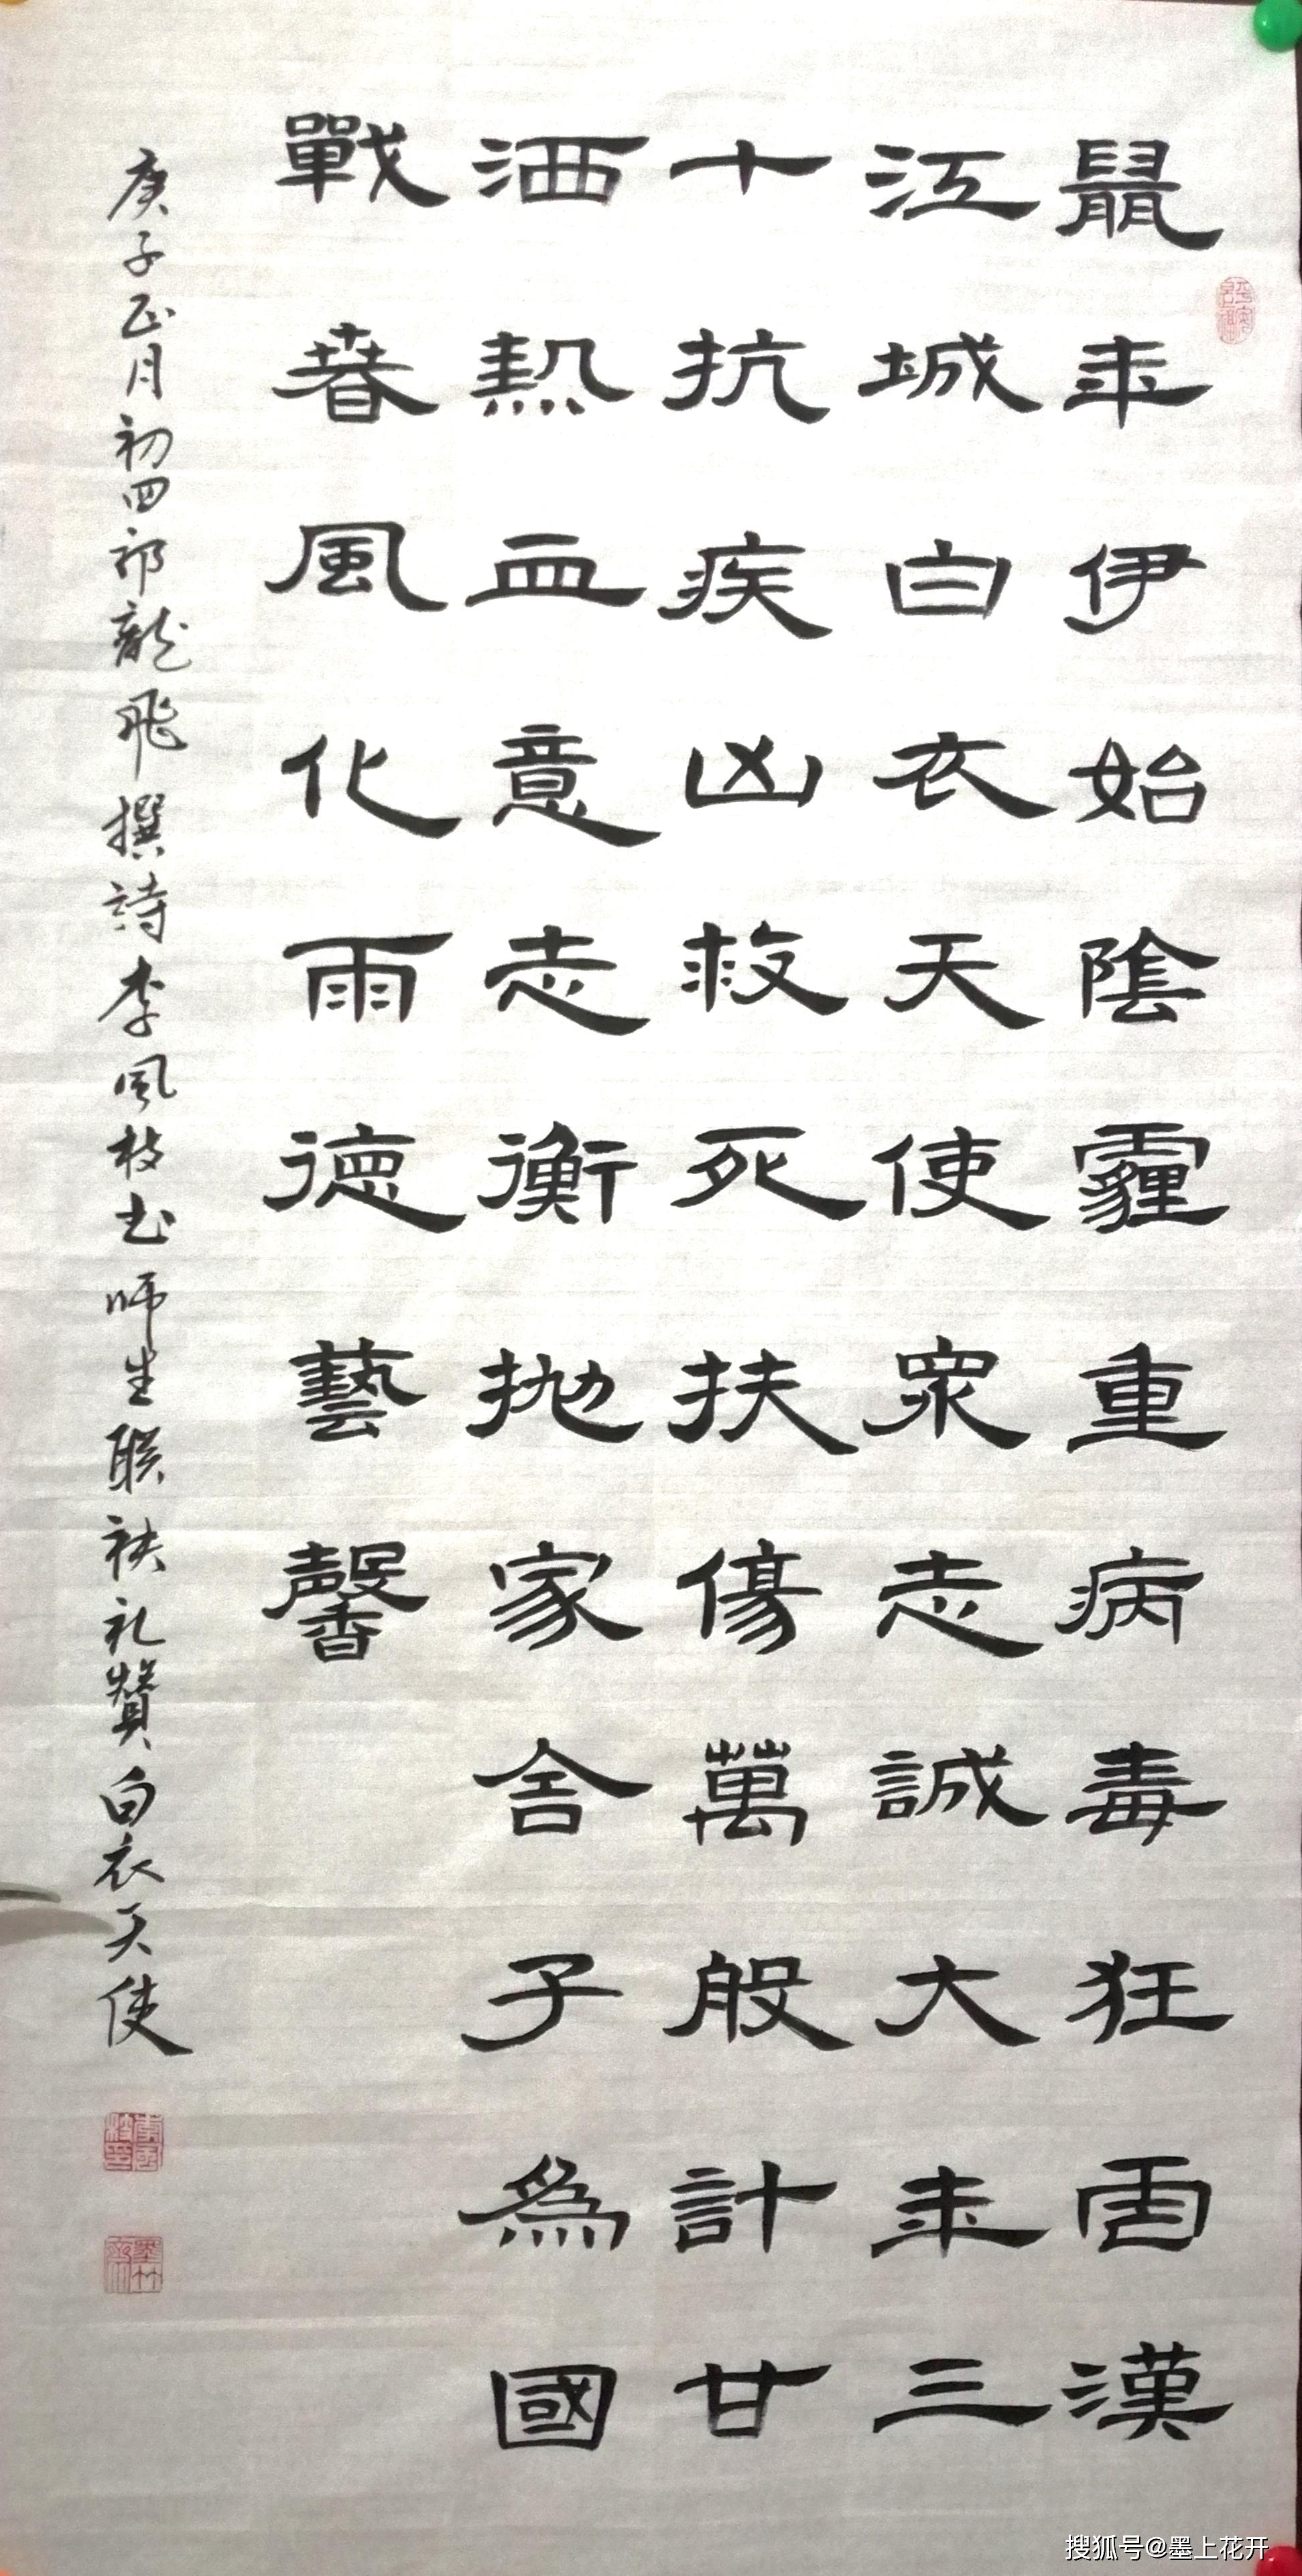 鼠年伊始陰霾重病毒狂漢
江城白衣天使眾志誠大年三
十抗疾凶救死扶傷萬般計甘
洒熱血意志衡抛家舍子為國
戰春風化雨德藝馨
庚子正月初四祁龍飛撰詩李风枝书师生联袂礼赞白衣天使
搜狐号@墨上花开